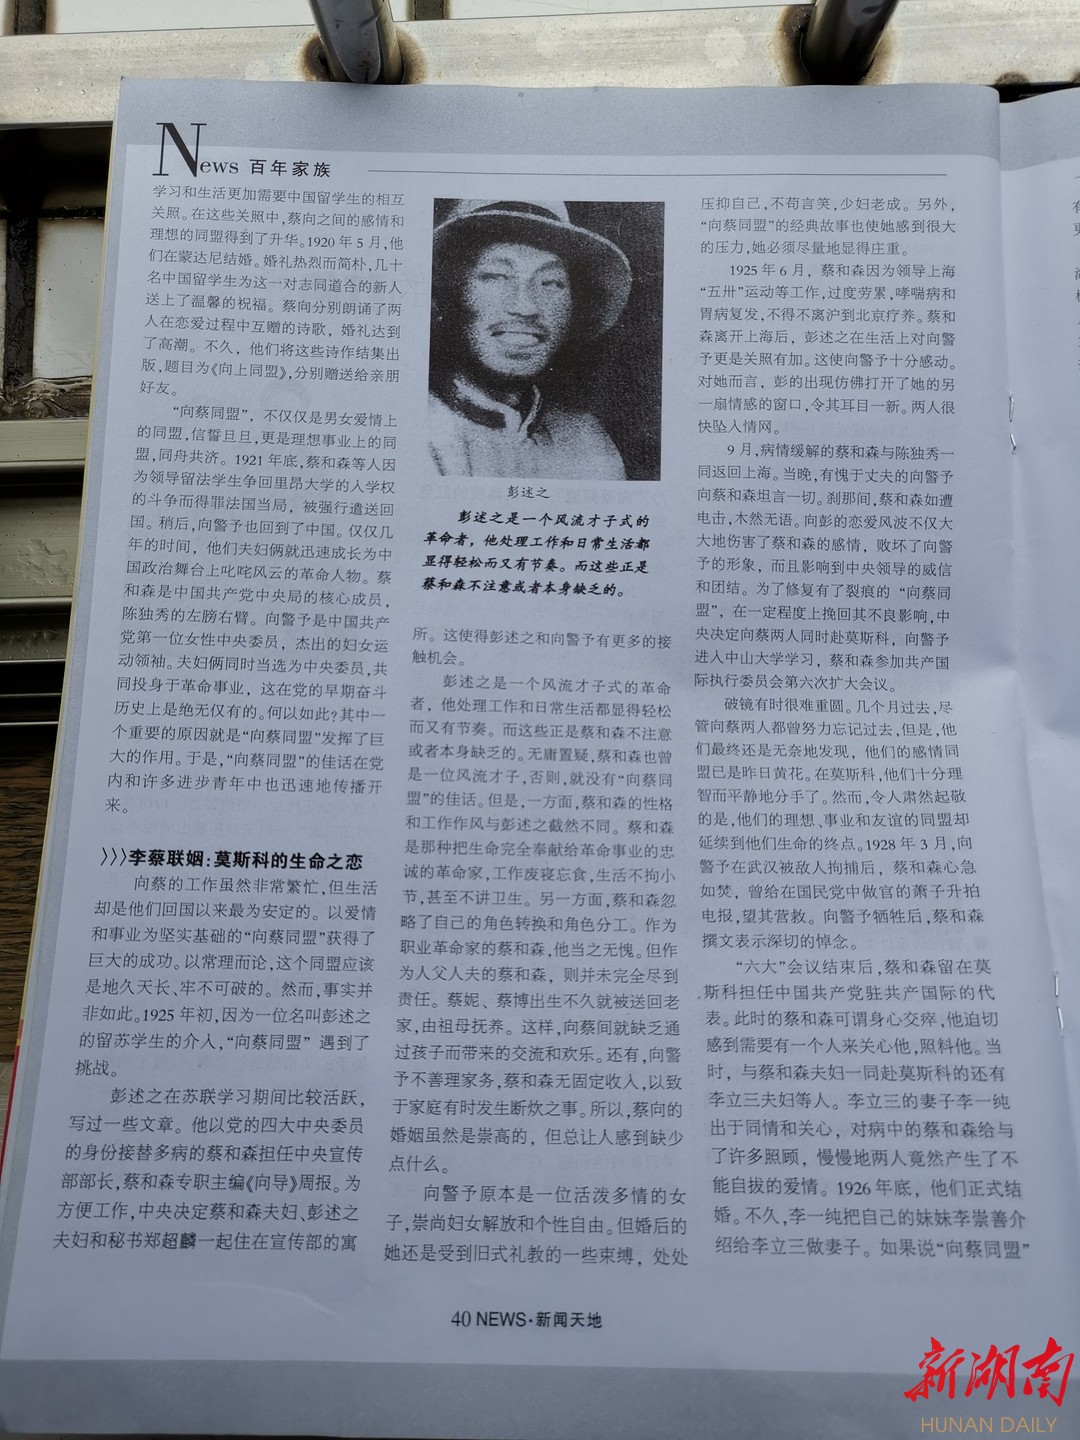 News 百年家族
学习和生活更加需要中国留学生的相互
关照。在这些关照中,蔡向之间的感情和
理想的同盟得到了升华。1920年5月,他
们在蒙达尼结婚。婚礼热烈而简朴,几十
名中国留学生为这一对志同道合的新人
送上了温馨的祝福。蔡向分别朗诵了两
人在恋爱过程中互赠的诗歌,婚礼达到
了高潮。不久,他们将这些诗作结集出
版,题目为《向上同盟》,分别赠送给亲朋
好友。
“向蔡同盟”,不仅仅是男女爱情上
的同盟,信誓旦旦,更是理想事业上的同
盟,同舟共济。1921年底,蔡和森等人因
为领导留法学生争回里昂大学的入学权
的斗争而得罪法国当局,被强行遣送回
国。稍后,向警予也回到了中国。仅仅几
年的时间,他们夫妇俩就迅速成长为中
国政治舞台上叱咤风云的革命人物。蔡
和森是中国共产党中央局的核心成员,
陈独秀的左膀右臂。向警予是中国共产
党第一位女性中央委员,杰出的妇女运
动领袖。夫妇俩同时当选为中央委员,共
同投身于革命事业,这在党的早期奋斗
历史上是绝无仅有的。何以如此?其中一
个重要的原因就是“向蔡同盟”发挥了巨
大的作用。于是,“向蔡同盟”的佳话在党
内和许多进步青年中也迅速地传播开
来。
》》》李蔡联姻:莫斯科的生命之恋
向蔡的工作虽然非常繁忙,但生活
却是他们回国以来最为安定的。以爱情
和事业为坚实基础的“向蔡同盟”获得了
巨大的成功。以常理而论,这个同盟应该
是地久天长、牢不可破的。然而,事实并
非如此。1925年初,因为一位名叫彭述之
的留苏学生的介入,“向蔡同盟”遇到了
挑战。
彭述之在苏联学习期间比较活跃,
写过一些文章。他以党的四大中央委员
的身份接替多病的蔡和森担任中央宣传
部部长,蔡和森专职主编《向导》周报。为
方便工作,中央决定蔡和森夫妇、彭述之
夫妇和秘书郑超麟一起住在宣传部的寓
彭述之
彭述之是一个风流才子式的
革命者,他处理工作和日常生活都
显得轻松而又有节奏。而这些正是
蔡和森不注意或者本身缺乏的。
所。这使得彭述之和向警予有更多的接
触机会。
彭述之是一个风流才子式的革命
者,他处理工作和日常生活都显得轻松
而又有节奏。而这些正是蔡和森不注意
或者本身缺乏的。无庸置疑,蔡和森也曾
是一位风流才子,否则,就没有“向蔡同
盟”的佳话。但是,一方面,蔡和森的性格
和工作作风与彭述之截然不同。蔡和森
是那种把生命完全奉献给革命事业的忠
诚的革命家,工作废寝忘食,生活不拘小
节,甚至不讲卫生。另一方面,蔡和森忽
略了自己的角色转换和角色分工。作为
职业革命家的蔡和森,他当之无愧。但作
为人父人夫的蔡和森,则并未完全尽到
责任。蔡妮、蔡博出生不久就被送回老
家,由祖母抚养。这样,向蔡间就缺乏通
过孩子而带来的交流和欢乐。还有,向警
予不善理家务,蔡和森无固定收入,以致
于家庭有时发生断炊之事。所以,蔡向的
婚姻虽然是崇高的,但总让人感到缺少
点什么。
向警予原本是一位活泼多情的女
子,崇尚妇女解放和个性自由。但婚后的
她还是受到旧式礼教的一些束缚,处处
压抑自己,不苟言笑,少妇老成。另外,
“向蔡同盟”的经典故事也使她感到很大
的压力,她必须尽量地显得庄重。
1925年6月,蔡和森因为领导上海
“五卅”运动等工作,过度劳累,哮喘病和
胃病复发,不得不离沪到北京疗养。蔡和
森离开上海后,彭述之在生活上对向警
予更是关照有加。这使向警予十分感动。
对她而言,彭的出现仿佛打开了她的另
一扇情感的窗口,令其耳目一新。两人很
快坠入情网。
9月,病情缓解的蔡和森与陈独秀一
同返回上海。当晚,有愧于丈夫的向警予
向蔡和森坦言一切。刹那间,蔡和森如遭
电击,木然无语。向彭的恋爱风波不仅大
大地伤害了蔡和森的感情,败坏了向警
予的形象,而且影响到中央领导的威信
和团结。为了修复有了裂痕的“向蔡同
盟”,在一定程度上挽回其不良影响,中
央决定向蔡两人同时赴莫斯科,向警予
进入中山大学学习,蔡和森参加共产国
际执行委员会第六次扩大会议。
破镜有时很难重圆。几个月过去,尽
管向蔡两人都曾努力忘记过去,但是,他
们最终还是无奈地发现,他们的感情同
盟已是昨日黄花。在莫斯科,他们十分理
智而平静地分手了。然而,令人肃然起敬
的是,他们的理想、事业和友谊的同盟却
延续到他们生命的终点。1928年3月,向
警予在武汉被敌人拘捕后,蔡和森心急
如焚,曾给在国民党中做官的萧子升拍
电报,望其营救。向警予牺牲后,蔡和森
撰文表示深切的悼念。
“六大”会议结束后,蔡和森留在莫
斯科担任中国共产党驻共产国际的代
表。此时的蔡和森可谓身心交瘁,他迫切
感到需要有一个人来关心他,照料他。当
时,与蔡和森夫妇一同赴莫斯科的还有
李立三夫妇等人。李立三的妻子李一纯
出于同情和关心,对病中的蔡和森给与
了许多照顾,慢慢地两人竟然产生了不
能自拔的爱情。1926年底,他们正式结
婚。不久,李一纯把自己的妹妹李崇善介
绍给李立三做妻子。如果说“向蔡同盟”
40 NEWS·新闻天地
新湖南
HUNAN DAILY